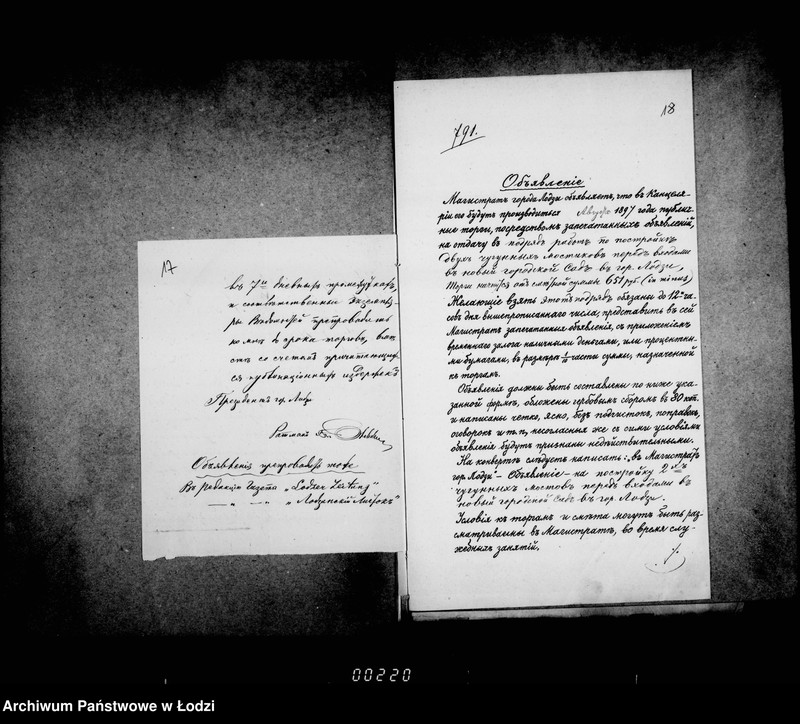 17
въ 7ми дневныхъ промежуткахъ,
и соответственные экземпля-
ры Ведомостей препроводить
ко мне къ срока торговъ, вме-
сте со счетомъ причитающих-
ся публикаціонныхъ издержекъ
Президентъ гор. Лодзи
Ратманъ
Объявленія препровождены тоже
Въ Редакцію Газеты „Lodzer Zeitung"
— „ — „ — „Лодзинскій Листокъ"
18
791.
Объявленіе
Магистратъ города Лодзи объявляетъ, что въ Канцеля-
ріи его будутъ производиться Августа 1897 года публич-
ные торги, посредствомъ запечатанныхъ объявленій,
на отдачу въ подрядъ работъ по постройкѣ
двухъ чугунныхъ мостиковъ передъ входами
въ новый городской Садъ въ гор. Лодзи,
Торги начнутся отъ смѣтной суммы 651 руб. (in minus)
Желающіе взять этотъ подрядъ обязаны до 12ти ча-
совъ дня вышепрописаннаго числа, представить въ сей
Магистратъ запечатанныя объявленія, съ приложеніемъ
временнаго залога наличными деньгами, или процентны-
ми бумагами, въ размѣрѣ 1/10 части суммы, назначенной
къ торгамъ.
Объявленія должны быть составлены по ниже ука-
занной формѣ, обложены гербовымъ сборомъ въ 80 коп.
и написаны четко, ясно, безъ подчистокъ, поправокъ,
оговорокъ и т. п., несогласныя же съ сими условіями
объявленія будутъ признаны недѣйствительными.
На конвертѣ слѣдуетъ написать: „въ Магистратъ
гор. Лодзи" – Объявленіе – на постройку 2хъ
чугунныхъ мостовъ передъ входами въ
новый городской Садъ въ гор. Лодзи.
Условія къ торгамъ и смѣта могутъ быть раз-
сматриваемы въ Магистратѣ, во время слу-
жебныхъ занятій.
00220
Archiwum Państwowe w Łodzi